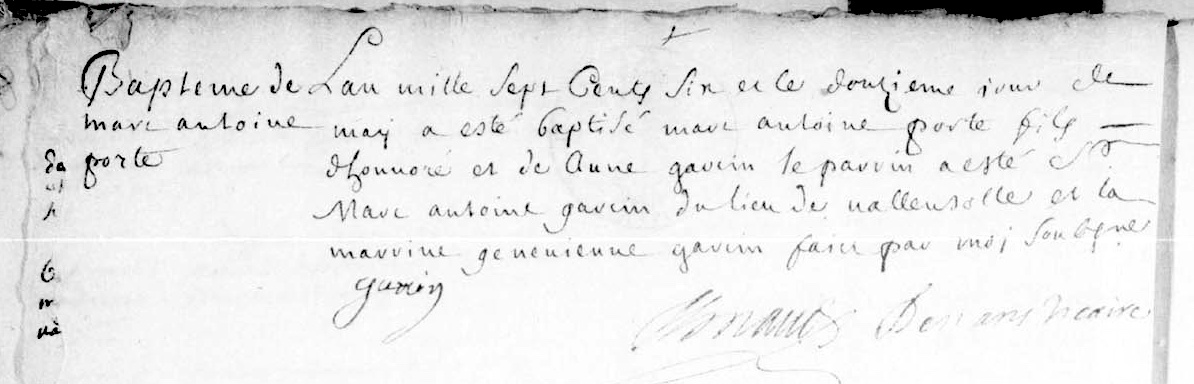 Bapteme de
marc antoine
porte
Lan mille sept Cents six et le douzieme jour de
may a esté baptisé marc antoine porte fils
dhonnoré et de Anne garcin le parrin a esté Sr
Marc antoine garcin du lieu de vallensolle et la
marrine genevienne garcin faict par moi soubsigné
garcin
Vicaire